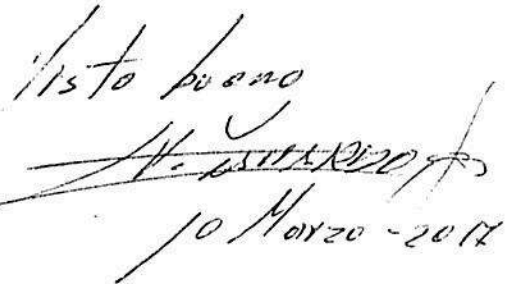 Visto bueno
10 Marzo - 2017